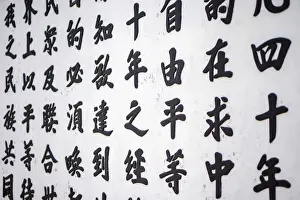 凡四十年
的在求中
自由平等
十年之經
知欲達到
的必須喚
民眾及聯合世
界上以平等待
我之民族共同